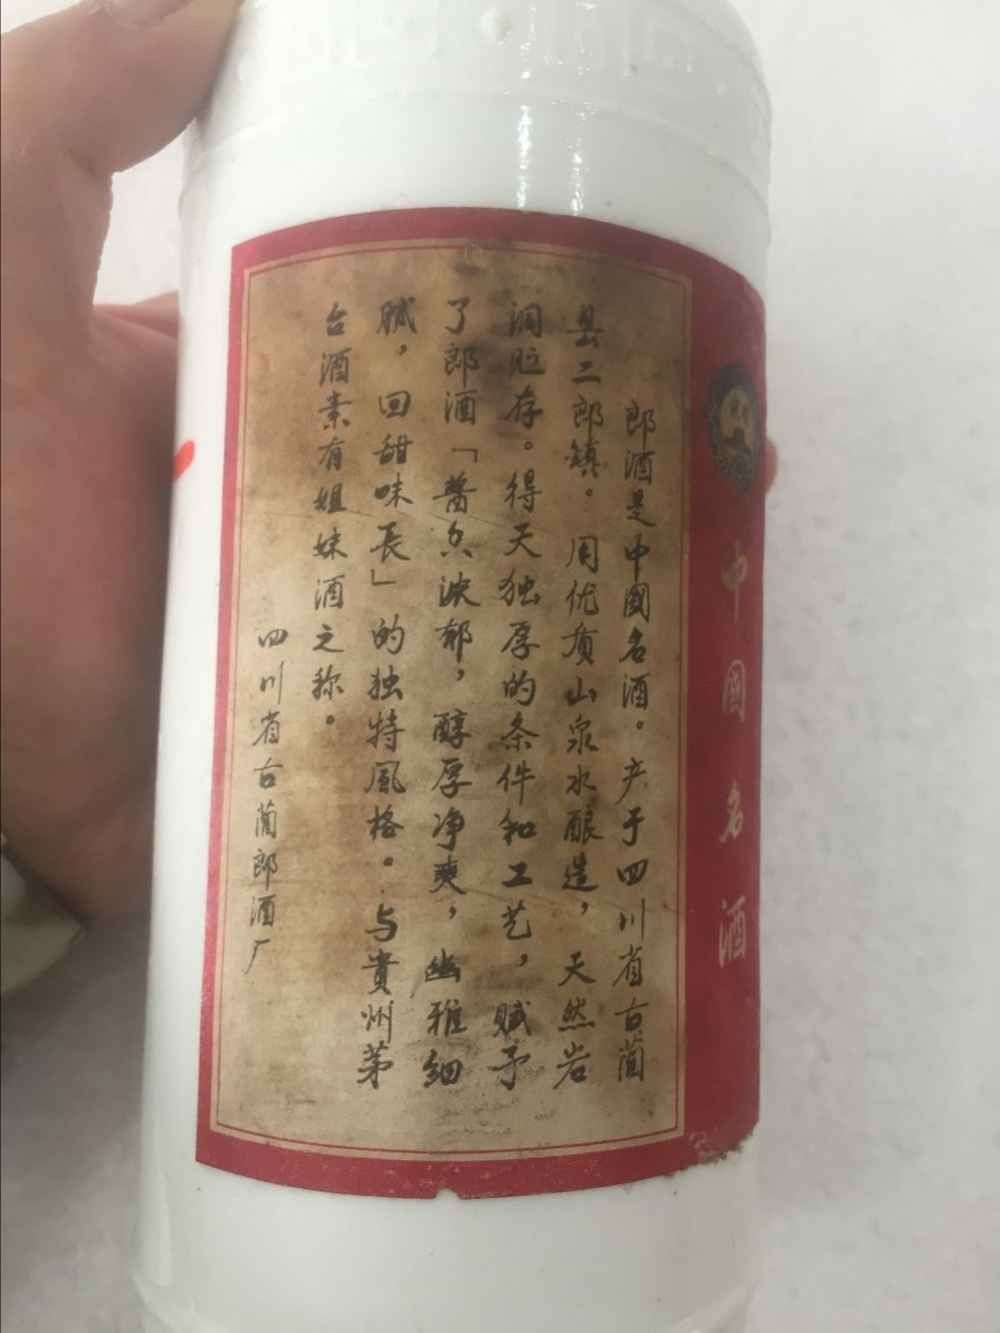 中國名酒
郎酒是中國名酒。产于四川省古蔺
县二郎镇。用优质山泉水酿造，天然岩
洞贮存。得天独厚的条件和工艺，赋予
了郎酒「酱香浓郁，醇厚净爽，幽雅细
腻，回甜味長」的独特風格。与貴州茅
台酒素有姐妹酒之称。
四川省古蔺郎酒厂